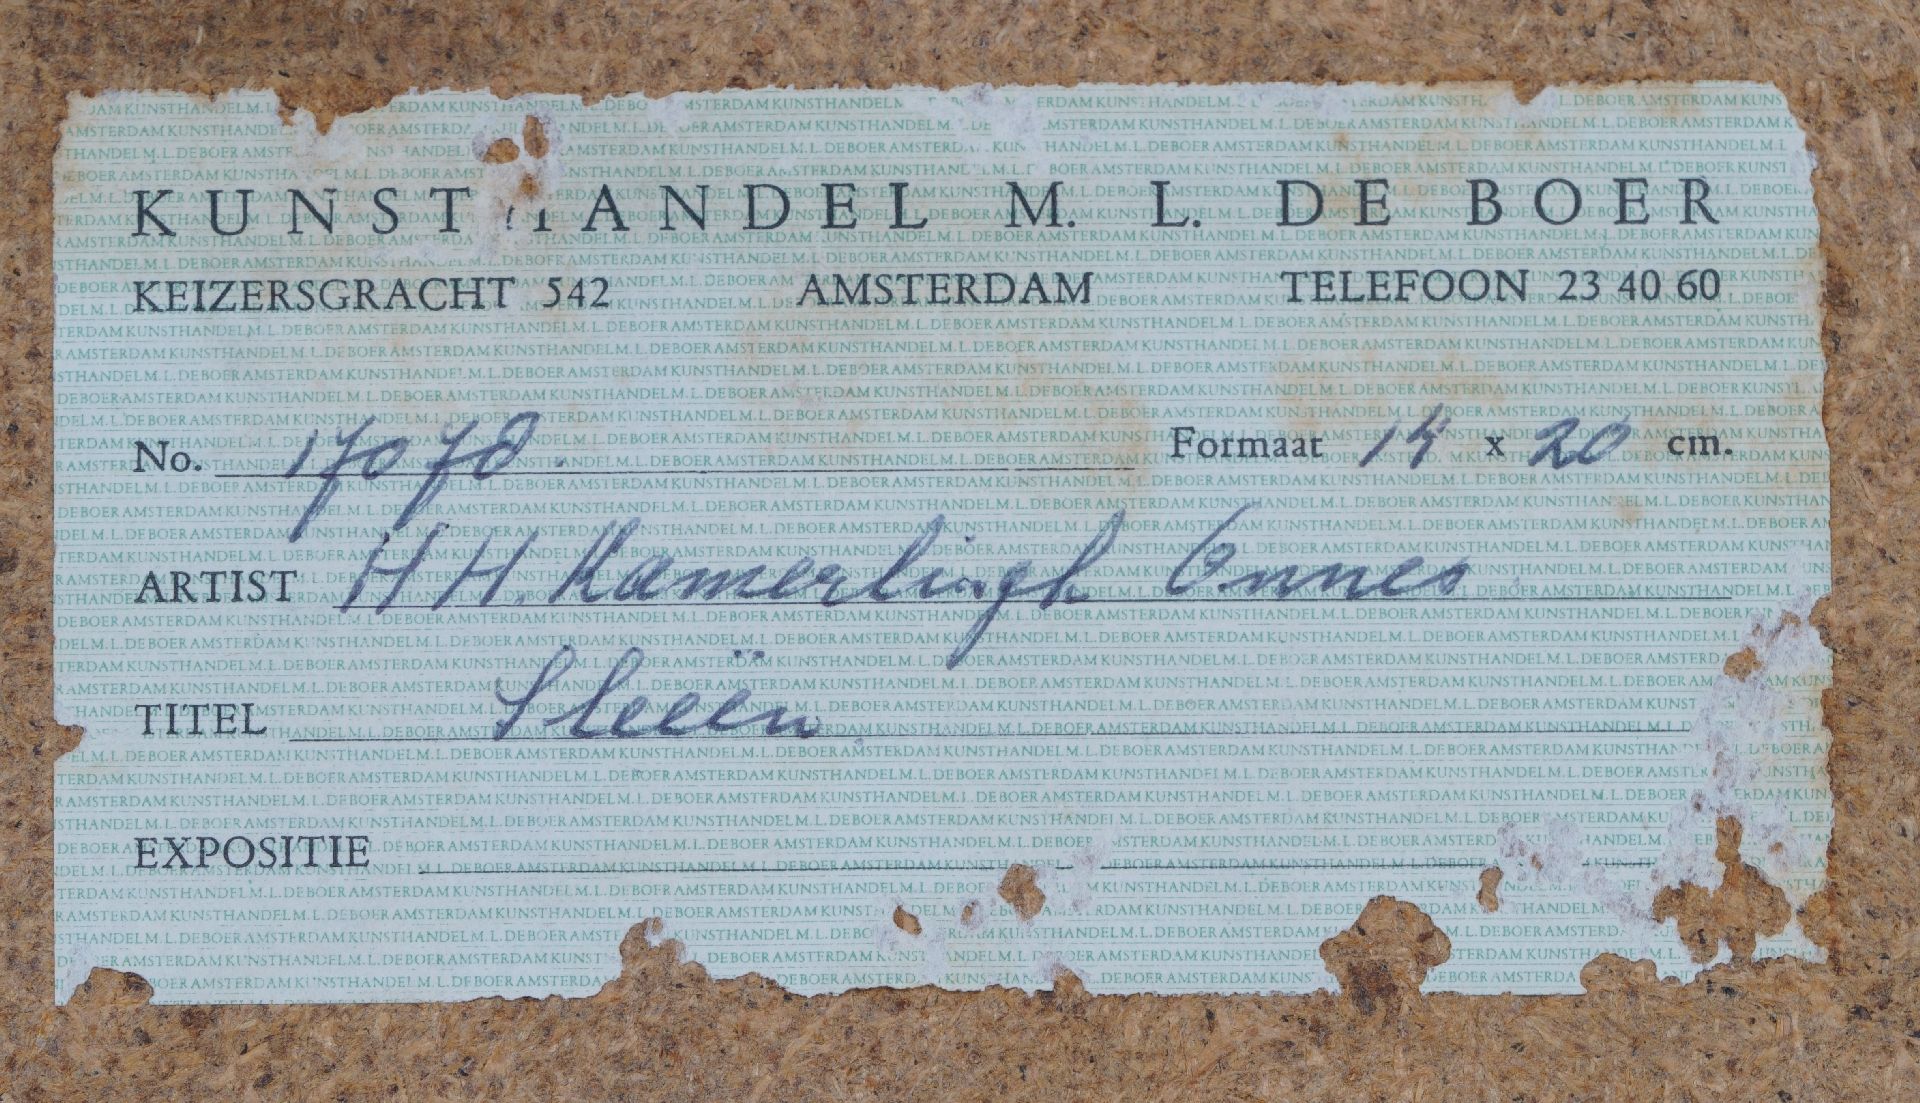 KUNSTHANDEL M. L. DE BOER
KEIZERSGRACHT 542 AMSTERDAM TELEFOON 23 40 60
No. 17078. Formaat 14 x 20 cm.
ARTIST H H. Kamerlingh Onnes.
TITEL Sleeën.
EXPOSITIE